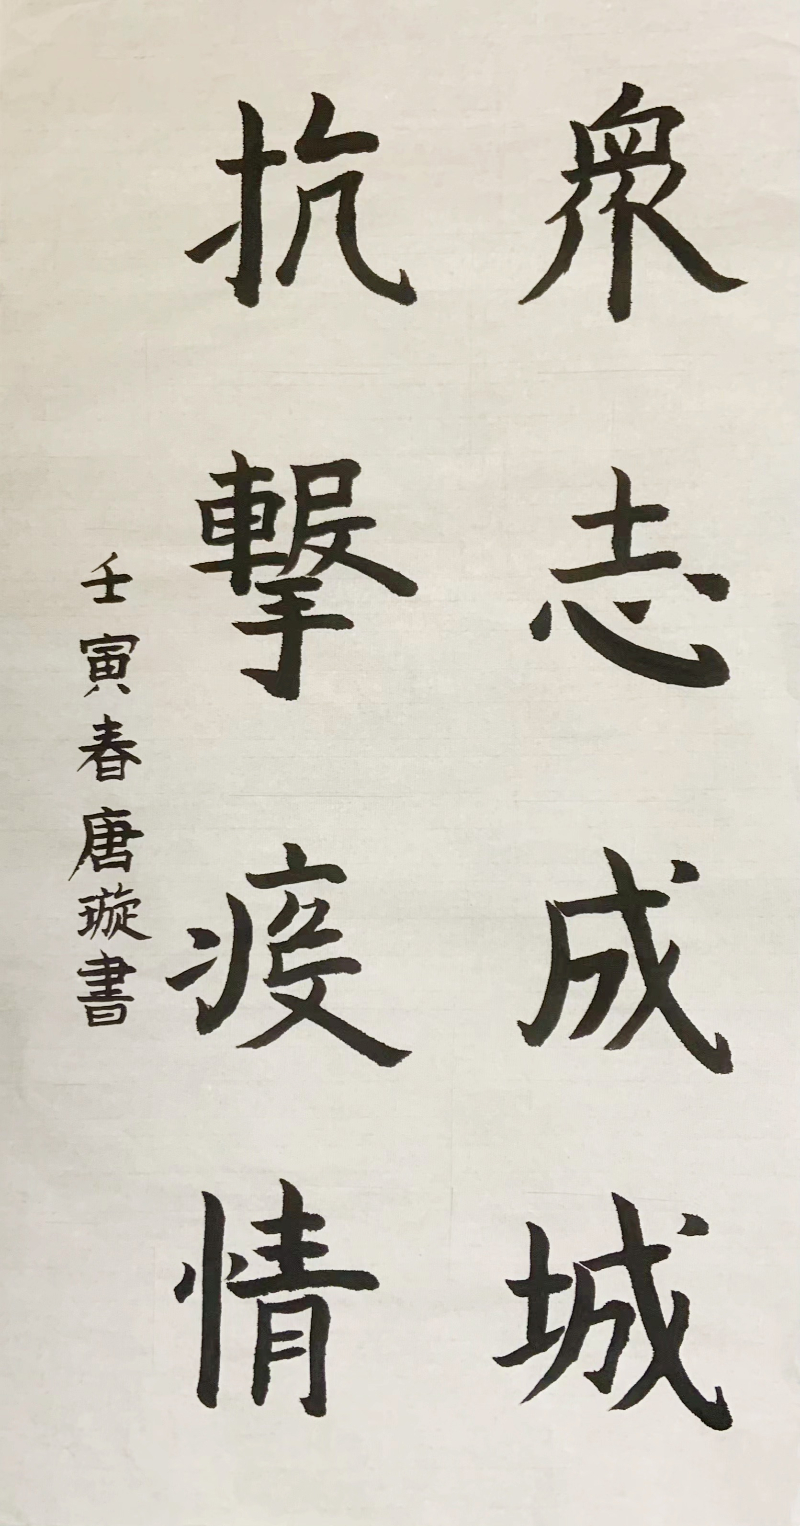 眾志成城
抗擊疫情
壬寅春唐璇書